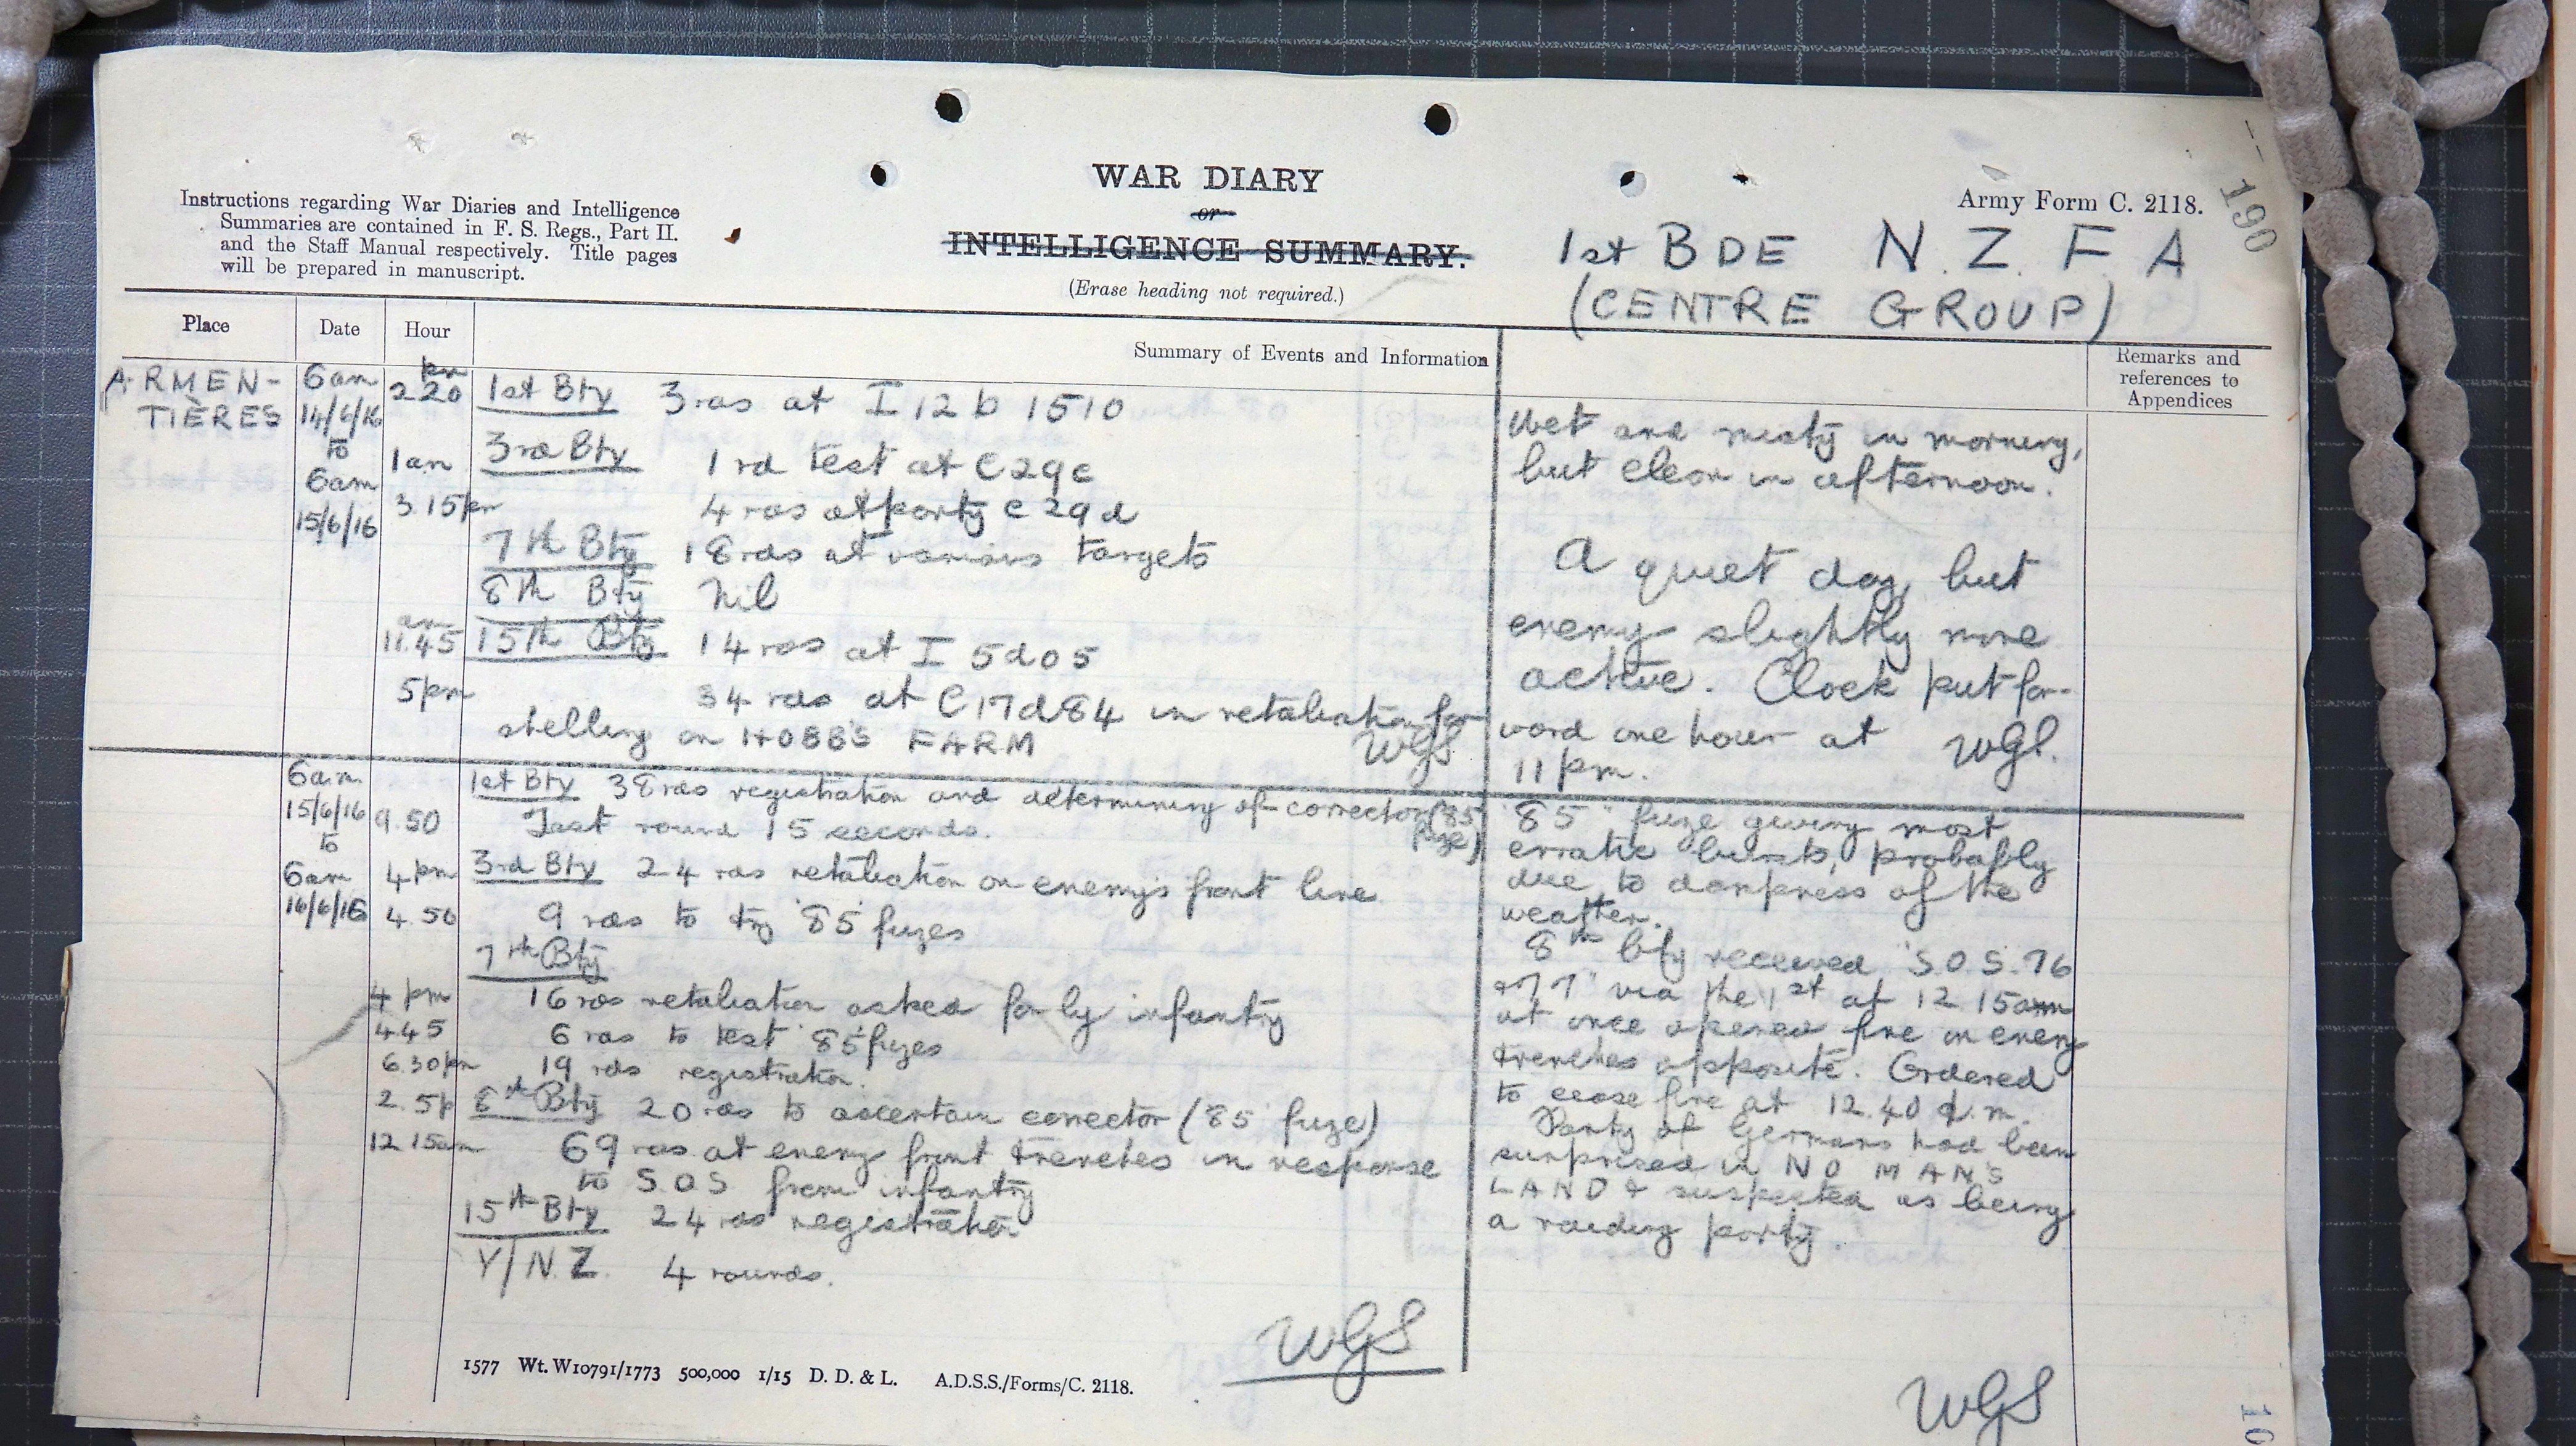 WAR DIARY
or
INTELLIGENCE SUMMARY.
(Erase heading not required.)
Instructions regarding War Diaries and Intelligence
Summaries are contained in F. S. Regs., Part II.
and the Staff Manual respectively. Title pages
will be prepared in manuscript.
Army Form C. 2118.
190
1st BDE N. Z. F A
(CENTRE GROUP)
Place Date Hour
Summary of Events and Information
Remarks and
references to
Appendices
ARMEN-
TIÈRES
6am
14/6/16
to
6am
15/6/16
2.20 pm 1st Bty 3 rds at I 12 b 1510
1am 3rd Bty 1 rd test at C29c
3.15pm 4 rds at party C 29 d
7th Bty 18 rds at various targets
8th Bty Nil
11.45 am 15th Bty 14 rds at I 5d05
5pm 34 rds at C17d84 in retaliation for
shelling on HOBBS FARM
WGS
Wet and misty in morning,
but clear in afternoon.
A quiet day, but
enemy slightly more
active. Clock put for-
ward one hour at
11pm. WGS.
6am
15/6/16
to
6am
16/6/16
1st Bty 38 rds registration and determining of corrector (85
fuze)
9.50 Test round 15 seconds.
4pm 3rd Bty 24 rds retaliation on enemy's front line
4.50 9 rds to try '85' fuzes
7th Bty
4 pm 16 rds retaliation asked for by infantry
4.45 6 rds to test '85' fuzes
6.30pm 19 rds registration.
2.5p 8th Bty 20 rds to ascertain corrector (85 fuze)
12.15am 69 rds at enemy front trenches in response
to S.O.S from infantry
15th Bty 24 rds registration
Y/N.Z. 4 rounds.
WGS
"85" fuze giving most
erratic bursts, probably
due to dampness of the
weather.
8th bty received "S.O.S. 76
& 77" via the 1st at 12.15am
at once opened fire on enemy
trenches opposite. Ordered
to cease fire at 12.40 a.m.
Party of Germans had been
surprised in NO MAN'S
LAND & suspected as being
a raiding party.
WGS
1577 Wt. W10791/1773 500,000 1/15 D. D. & L. A.D.S.S./Forms/C. 2118.